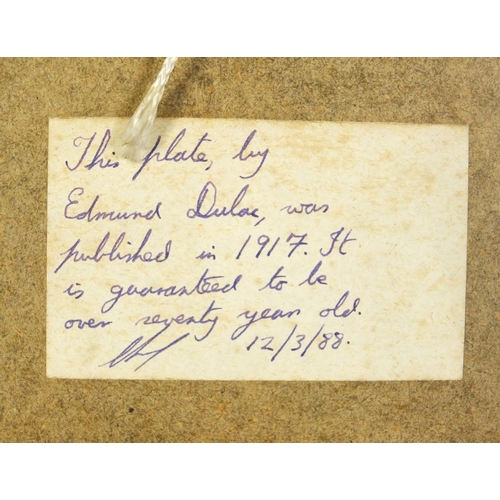 This plate, by
Edmund Dulac, was
published in 1917. It
is guaranteed to be
over seventy year old.
12/3/88.